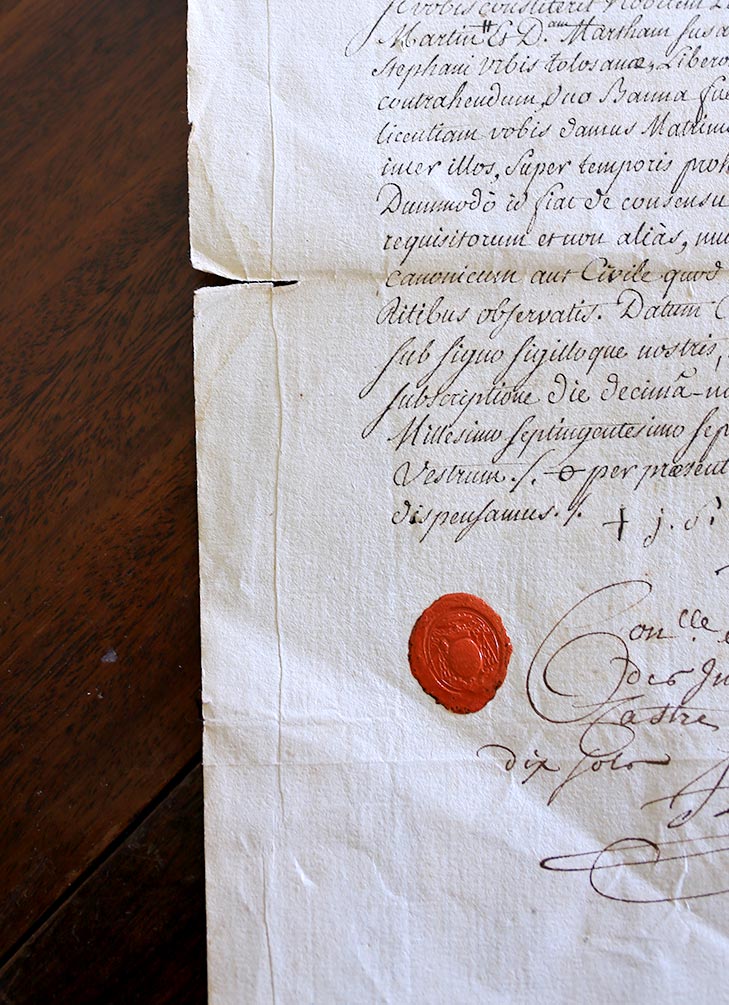 si vobis constiterit Nobilem
Martin Et D.am Martham
Stephani urbis tolosanæ, Libero
contrahendum, Duo Banna fue
licentiam vobis damus Matrim
inter illos, super temporis proh
Dummodò id fiat de consensu
requisitorum et non aliàs, nu
canonicum aut Civile quod
Ritibus observatis. Datum C
sub signo sigilloque nostris,
subscriptione die decimâ-no
Millesimo septingentesimo sep
Vestrum ./. per præsent
dispensamus ./. + j. S.
Con.lle e
des In
Castre
dix sols